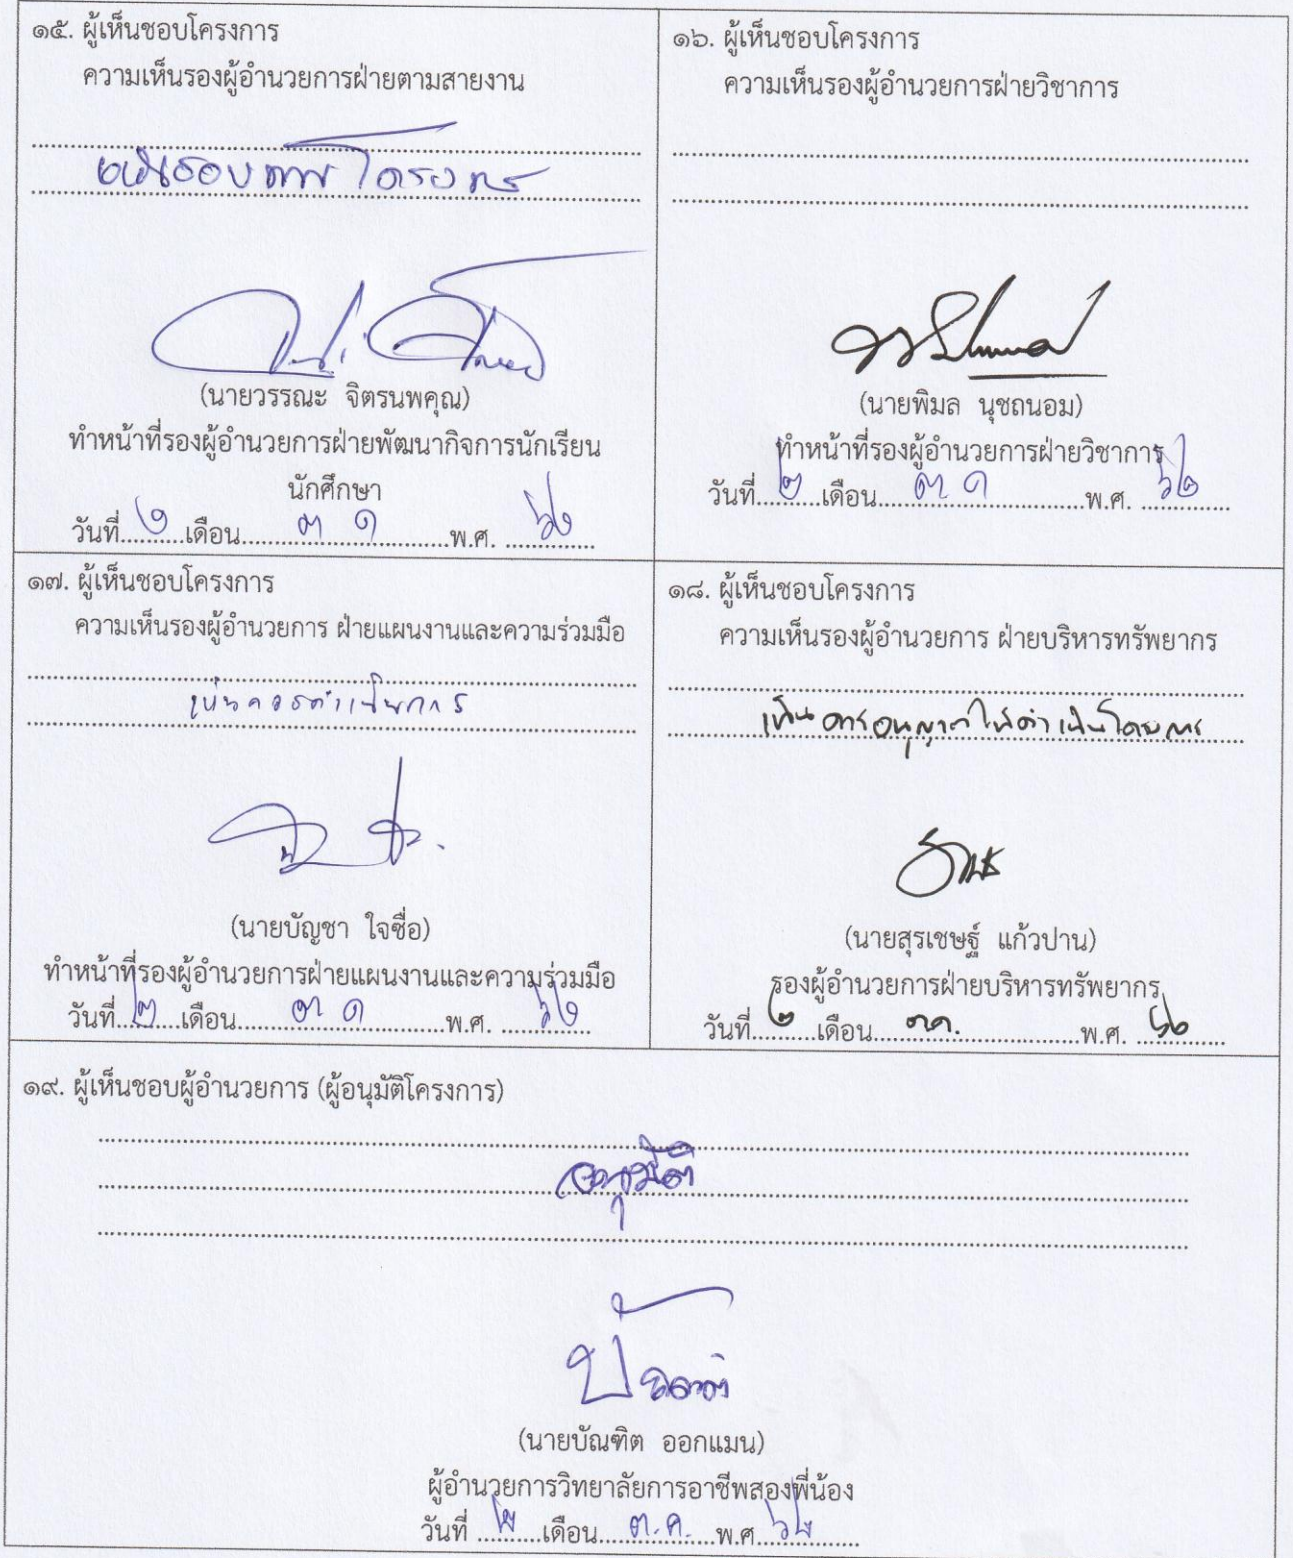 ๑๕. ผู้เห็นชอบโครงการ
ความเห็นรองผู้อำนวยการฝ่ายตามสายงาน
เห็นชอบตามโครงการ
(นายวรรณะ จิตรนพคุณ)
ทำหน้าที่รองผู้อำนวยการฝ่ายพัฒนากิจการนักเรียน
นักศึกษา
วันที่..........เดือน.......ต ค.......พ.ศ. ..............
๑๖. ผู้เห็นชอบโครงการ
ความเห็นรองผู้อำนวยการฝ่ายวิชาการ
(นายพิมล นุชถนอม)
ทำหน้าที่รองผู้อำนวยการฝ่ายวิชาการ
วันที่....๒....เดือน.......ต ค.......พ.ศ. ...๖๒...
๑๗. ผู้เห็นชอบโครงการ
ความเห็นรองผู้อำนวยการ ฝ่ายแผนงานและความร่วมมือ
เห็นควรดำเนินการ
(นายบัญชา ใจซื่อ)
ทำหน้าที่รองผู้อำนวยการฝ่ายแผนงานและความร่วมมือ
วันที่....๒....เดือน.......ต ค.......พ.ศ. ...๖๒...
๑๘. ผู้เห็นชอบโครงการ
ความเห็นรองผู้อำนวยการ ฝ่ายบริหารทรัพยากร
เห็นควรอนุญาตให้ดำเนินโครงการ
(นายสุรเชษฐ์ แก้วปาน)
รองผู้อำนวยการฝ่ายบริหารทรัพยากร
วันที่....๒....เดือน....ตค.......พ.ศ. ...๖๒...
๑๙. ผู้เห็นชอบผู้อำนวยการ (ผู้อนุมัติโครงการ)
อนุมัติ
(นายบัณฑิต ออกแมน)
ผู้อำนวยการวิทยาลัยการอาชีพสองพี่น้อง
วันที่ ....๒....เดือน....ต.ค.....พ.ศ...๖๒...